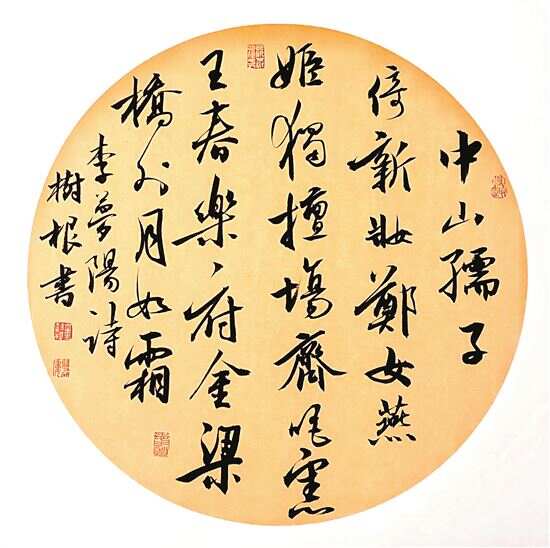 中山孺子
倚新妝鄭女燕
姬獨擅場齊唱憲
王春樂府金梁
橋外月如霜
李夢陽詩
樹根書